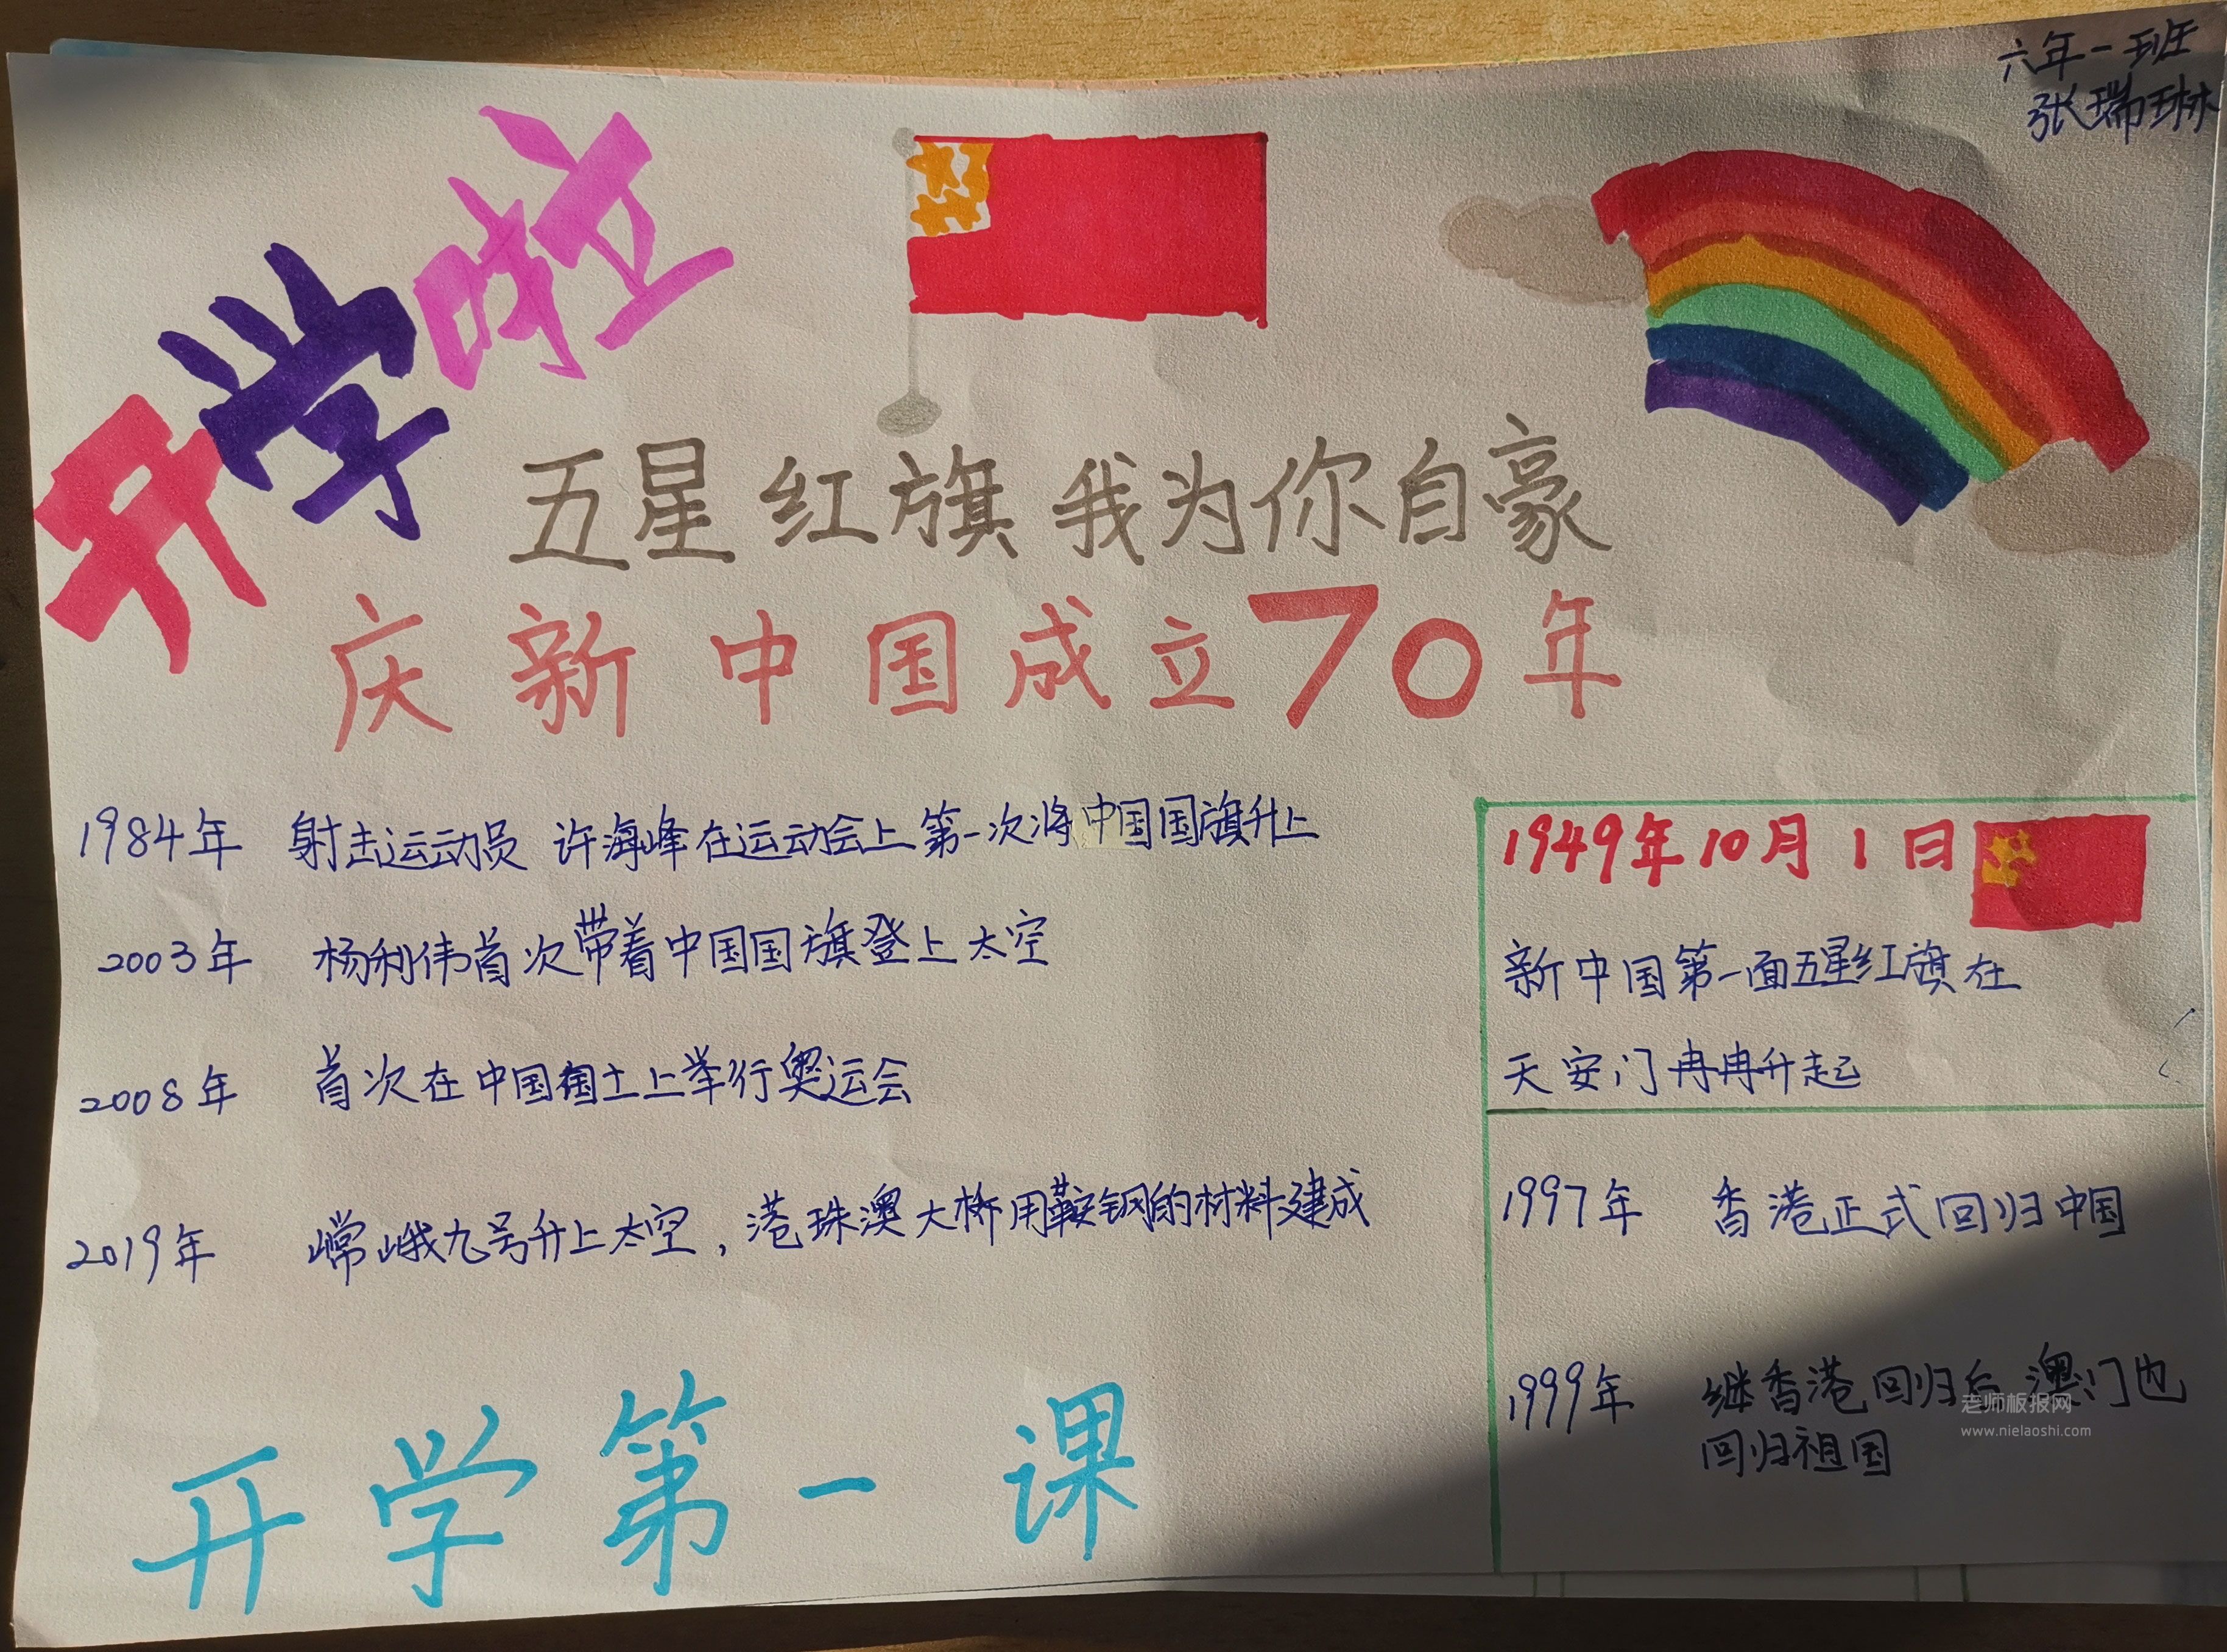 六年一班
张瑞琳
开学啦
五星红旗我为你自豪
庆新中国成立70年
1984年 射击运动员 许海峰在运动会上第一次将中国国旗升上
2003年 杨利伟首次带着中国国旗登上太空
2008年 首次在中国国土上举行奥运会
2019年 嫦峨九号升上太空，港珠澳大桥用鞍钢的材料建成
开学第一课
1949年10月1日
新中国第一面五星红旗在
天安门冉冉升起
1997年 香港正式回归中国
1999年 继香港回归后 澳门也
回归祖国
老师板报网
www.nielaoshi.com